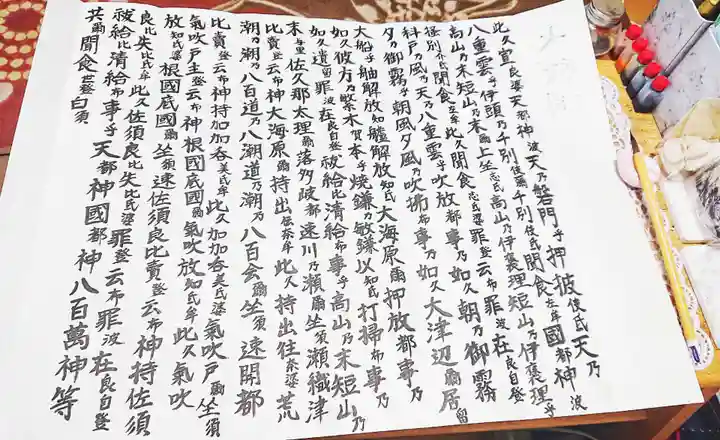 此久宣良婆天都神波天乃磐門乎押披使氐天乃
八重雲乎伊頭乃千別爾千別使氐聞食左牟國都神波
高山乃末短山乃末爾上坐志氐高山乃伊褒理短山乃伊褒理乎
掻別介氐聞食左牟此久聞食志氐婆罪登云布罪波在良自登
科戸乃風乃天乃八重雲乎吹放都事乃如久朝乃御霧
夕乃御霧乎朝風夕風乃吹拂布事乃如久大津辺爾居留
大船乎舳解放知氐艫解放知氐大海原爾押放都事乃
如久彼方乃繁木賀本乎焼鎌乃敏鎌以知氐打掃布事乃
如久遺留罪波在良自登祓給比清給布事乎高山乃末短山乃
末与里佐久那太理爾落多岐都速川乃瀬爾坐須瀬織津
比賣登云布神大海原爾持出傳奈牟此久持出往奈婆荒
潮乃潮乃八百道乃八潮道乃潮乃八百会爾坐須速開都
比賣登云布神持加加吞美氐牟此久加加吞美氐婆氣吹戸爾坐須
氣吹戸主登云布神根國底國爾氣吹放知氐牟此久氣吹
放知氐婆根國底國爾坐須速佐須良比賣登云布神持佐須
良比失比氐牟此久佐須良比失比氐婆罪登云布罪波在良自登
祓給比清給布事乎天都神國都神八百萬神等
共爾聞食世登白須